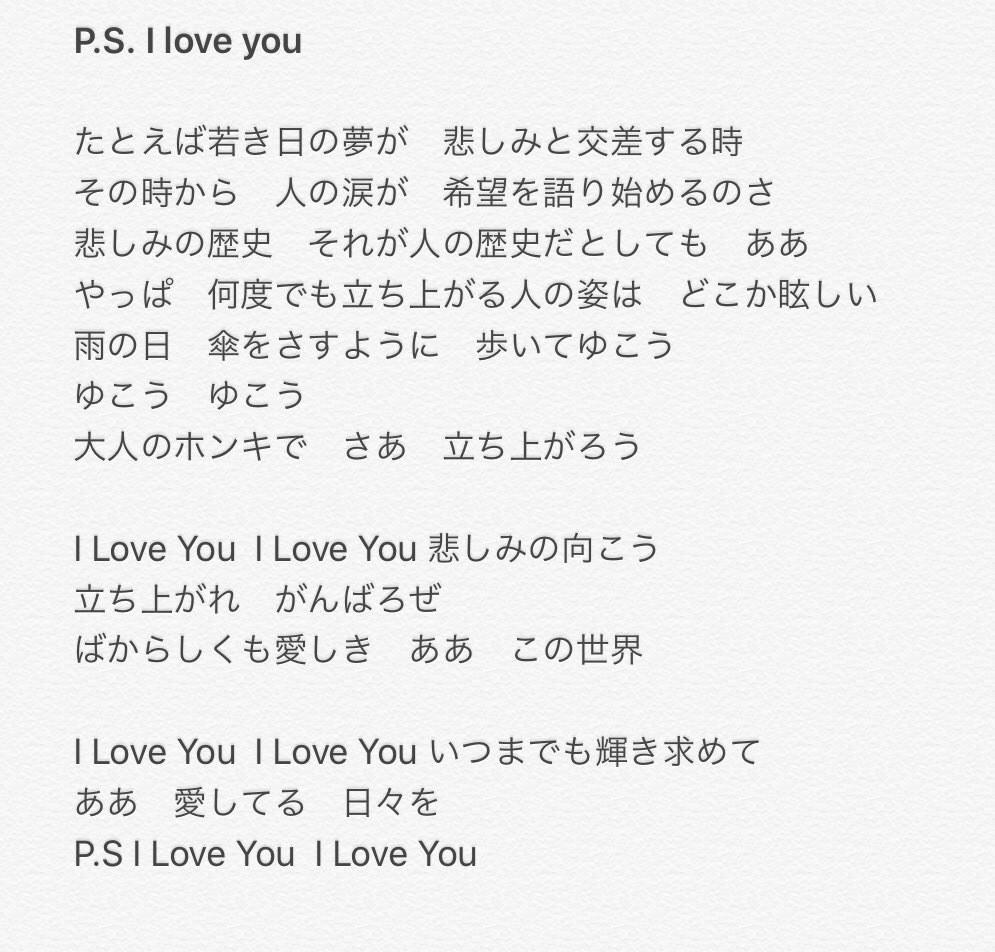 P.S. I love you
たとえば若き日の夢が　悲しみと交差する時
その時から　人の涙が　希望を語り始めるのさ
悲しみの歴史　それが人の歴史だとしても　ああ
やっぱ　何度でも立ち上がる人の姿は　どこか眩しい
雨の日　傘をさすように　歩いてゆこう
ゆこう　ゆこう
大人のホンキで　さあ　立ち上がろう
I Love You  I Love You 悲しみの向こう
立ち上がれ　がんばろぜ
ばからしくも愛しき　ああ　この世界
I Love You  I Love You いつまでも輝き求めて
ああ　愛してる　日々を
P.S I Love You  I Love You